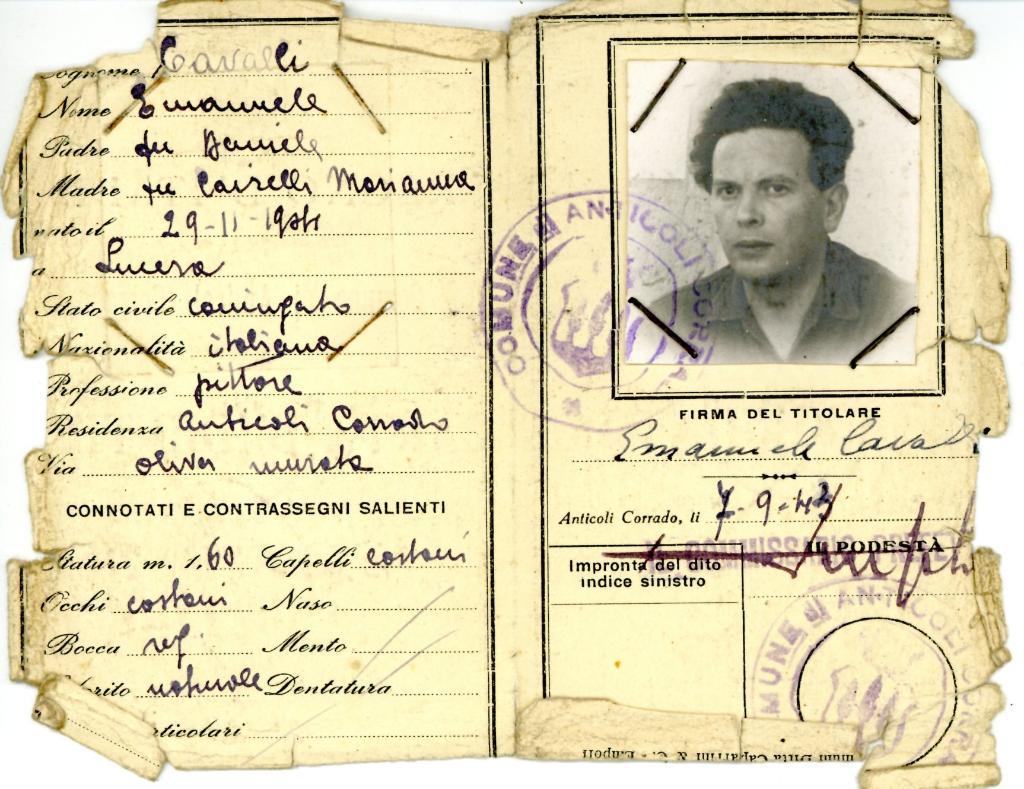 Cognome Cavalli
Nome Emanuele
Padre fu Daniele
Madre fu Cairelli Marianna
nato il 29-11-1904
a Lucera
Stato civile coniugato
Nazionalità italiana
Professione pittore
Residenza Anticoli Corrado
Via oliva murata
CONNOTATI E CONTRASSEGNI SALIENTI
Statura m. 1,60 Capelli castani
Occhi castani Naso
Bocca reg. Mento
Colorito naturale Dentatura
rticolari
COMUNE DI ANTICOLI CORRADO
FIRMA DEL TITOLARE
Emanuele Cavalli
Anticoli Corrado, li 7-9-43
IL PODESTÀ
Impronta del dito
indice sinistro
MUNE DI ANTICOLI CORR
Ditta Caparrini & C. - Empoli